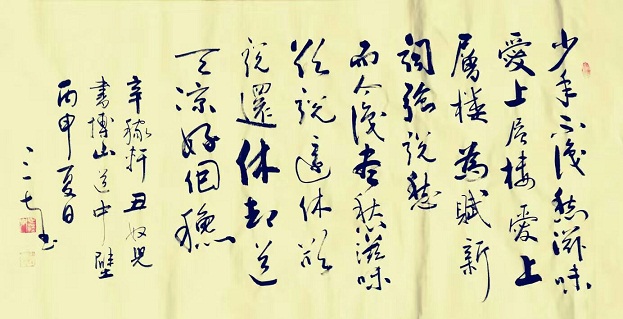 少年不識愁滋味
愛上层樓愛上
層楼為賦新
詞強說愁
而今識盡愁滋味
欲說還休欲
說還休却道
天凉好個穐
辛稼軒丑奴兒
書博山道中壁
丙申夏日